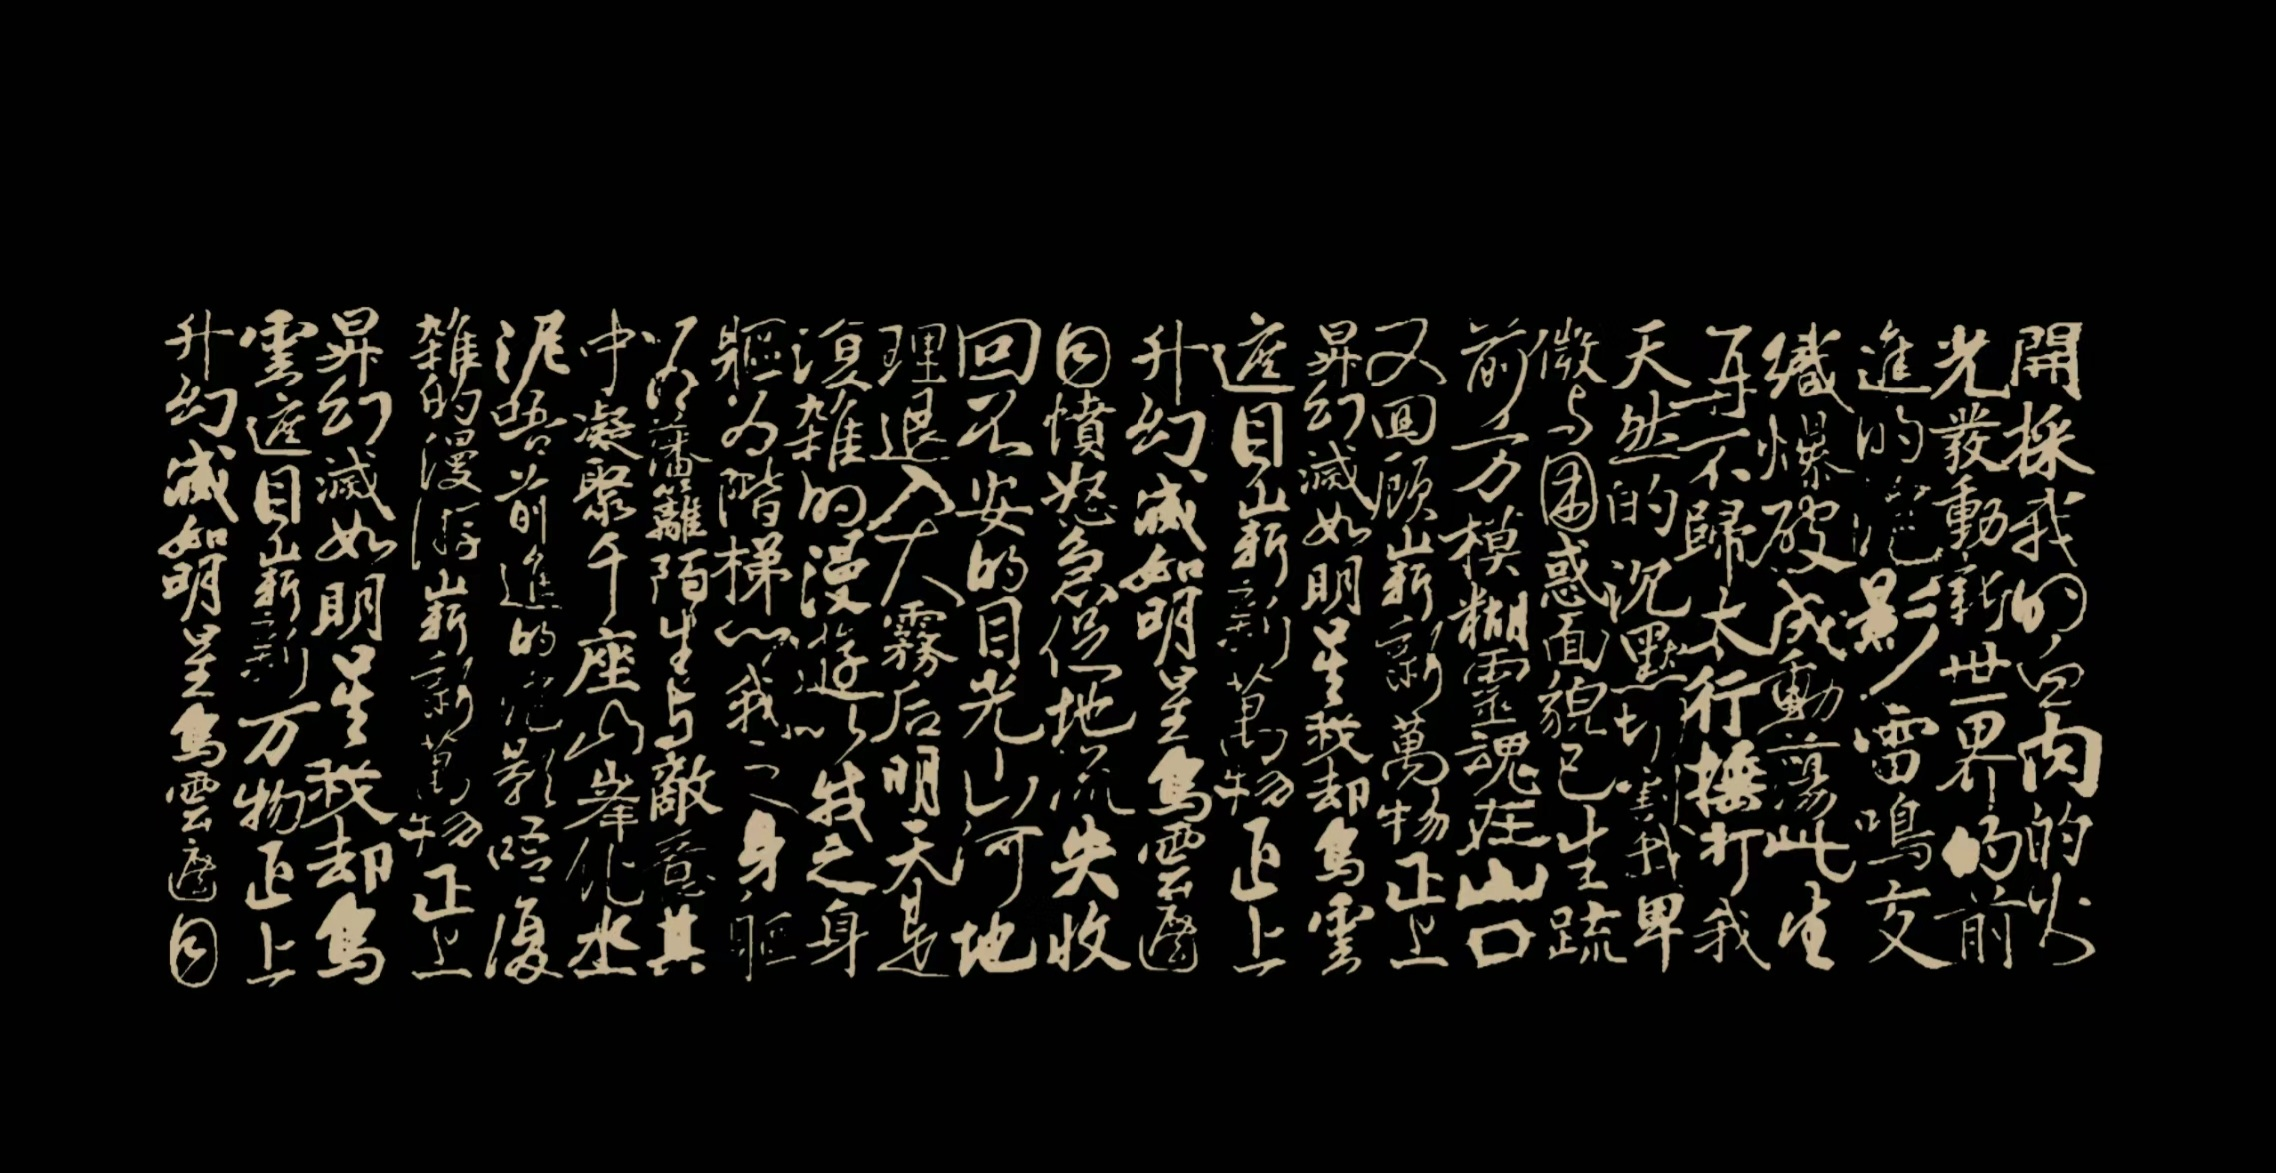 開採我的皿肉的火
光發動新世界的前
進的泡影雷鳴交
織爆破成動蕩此生
再不歸太行捶打我
天然的沉默切割我卑
微与困惑面貌已生疏
前方模糊靈魂在山口
又回顧嶄新萬物正上
昇幻滅如明星我却烏雲
遮目嶄新萬物正上
升幻滅如明星烏雲遮
日憤怒急促地流失收
回不安的目光山河地
理退入大霧后明天是
復雜的漫遊以我之身
軀為階梯以我之身軀
以為藩籬陌生与敵意其
中凝聚千座山峯化水
泥唔前進的泡影唔復
雜的漫游嶄新萬物正上
昇幻滅如明星我却烏
雲遮目嶄新万物正上
升幻滅如明星烏雲遮日